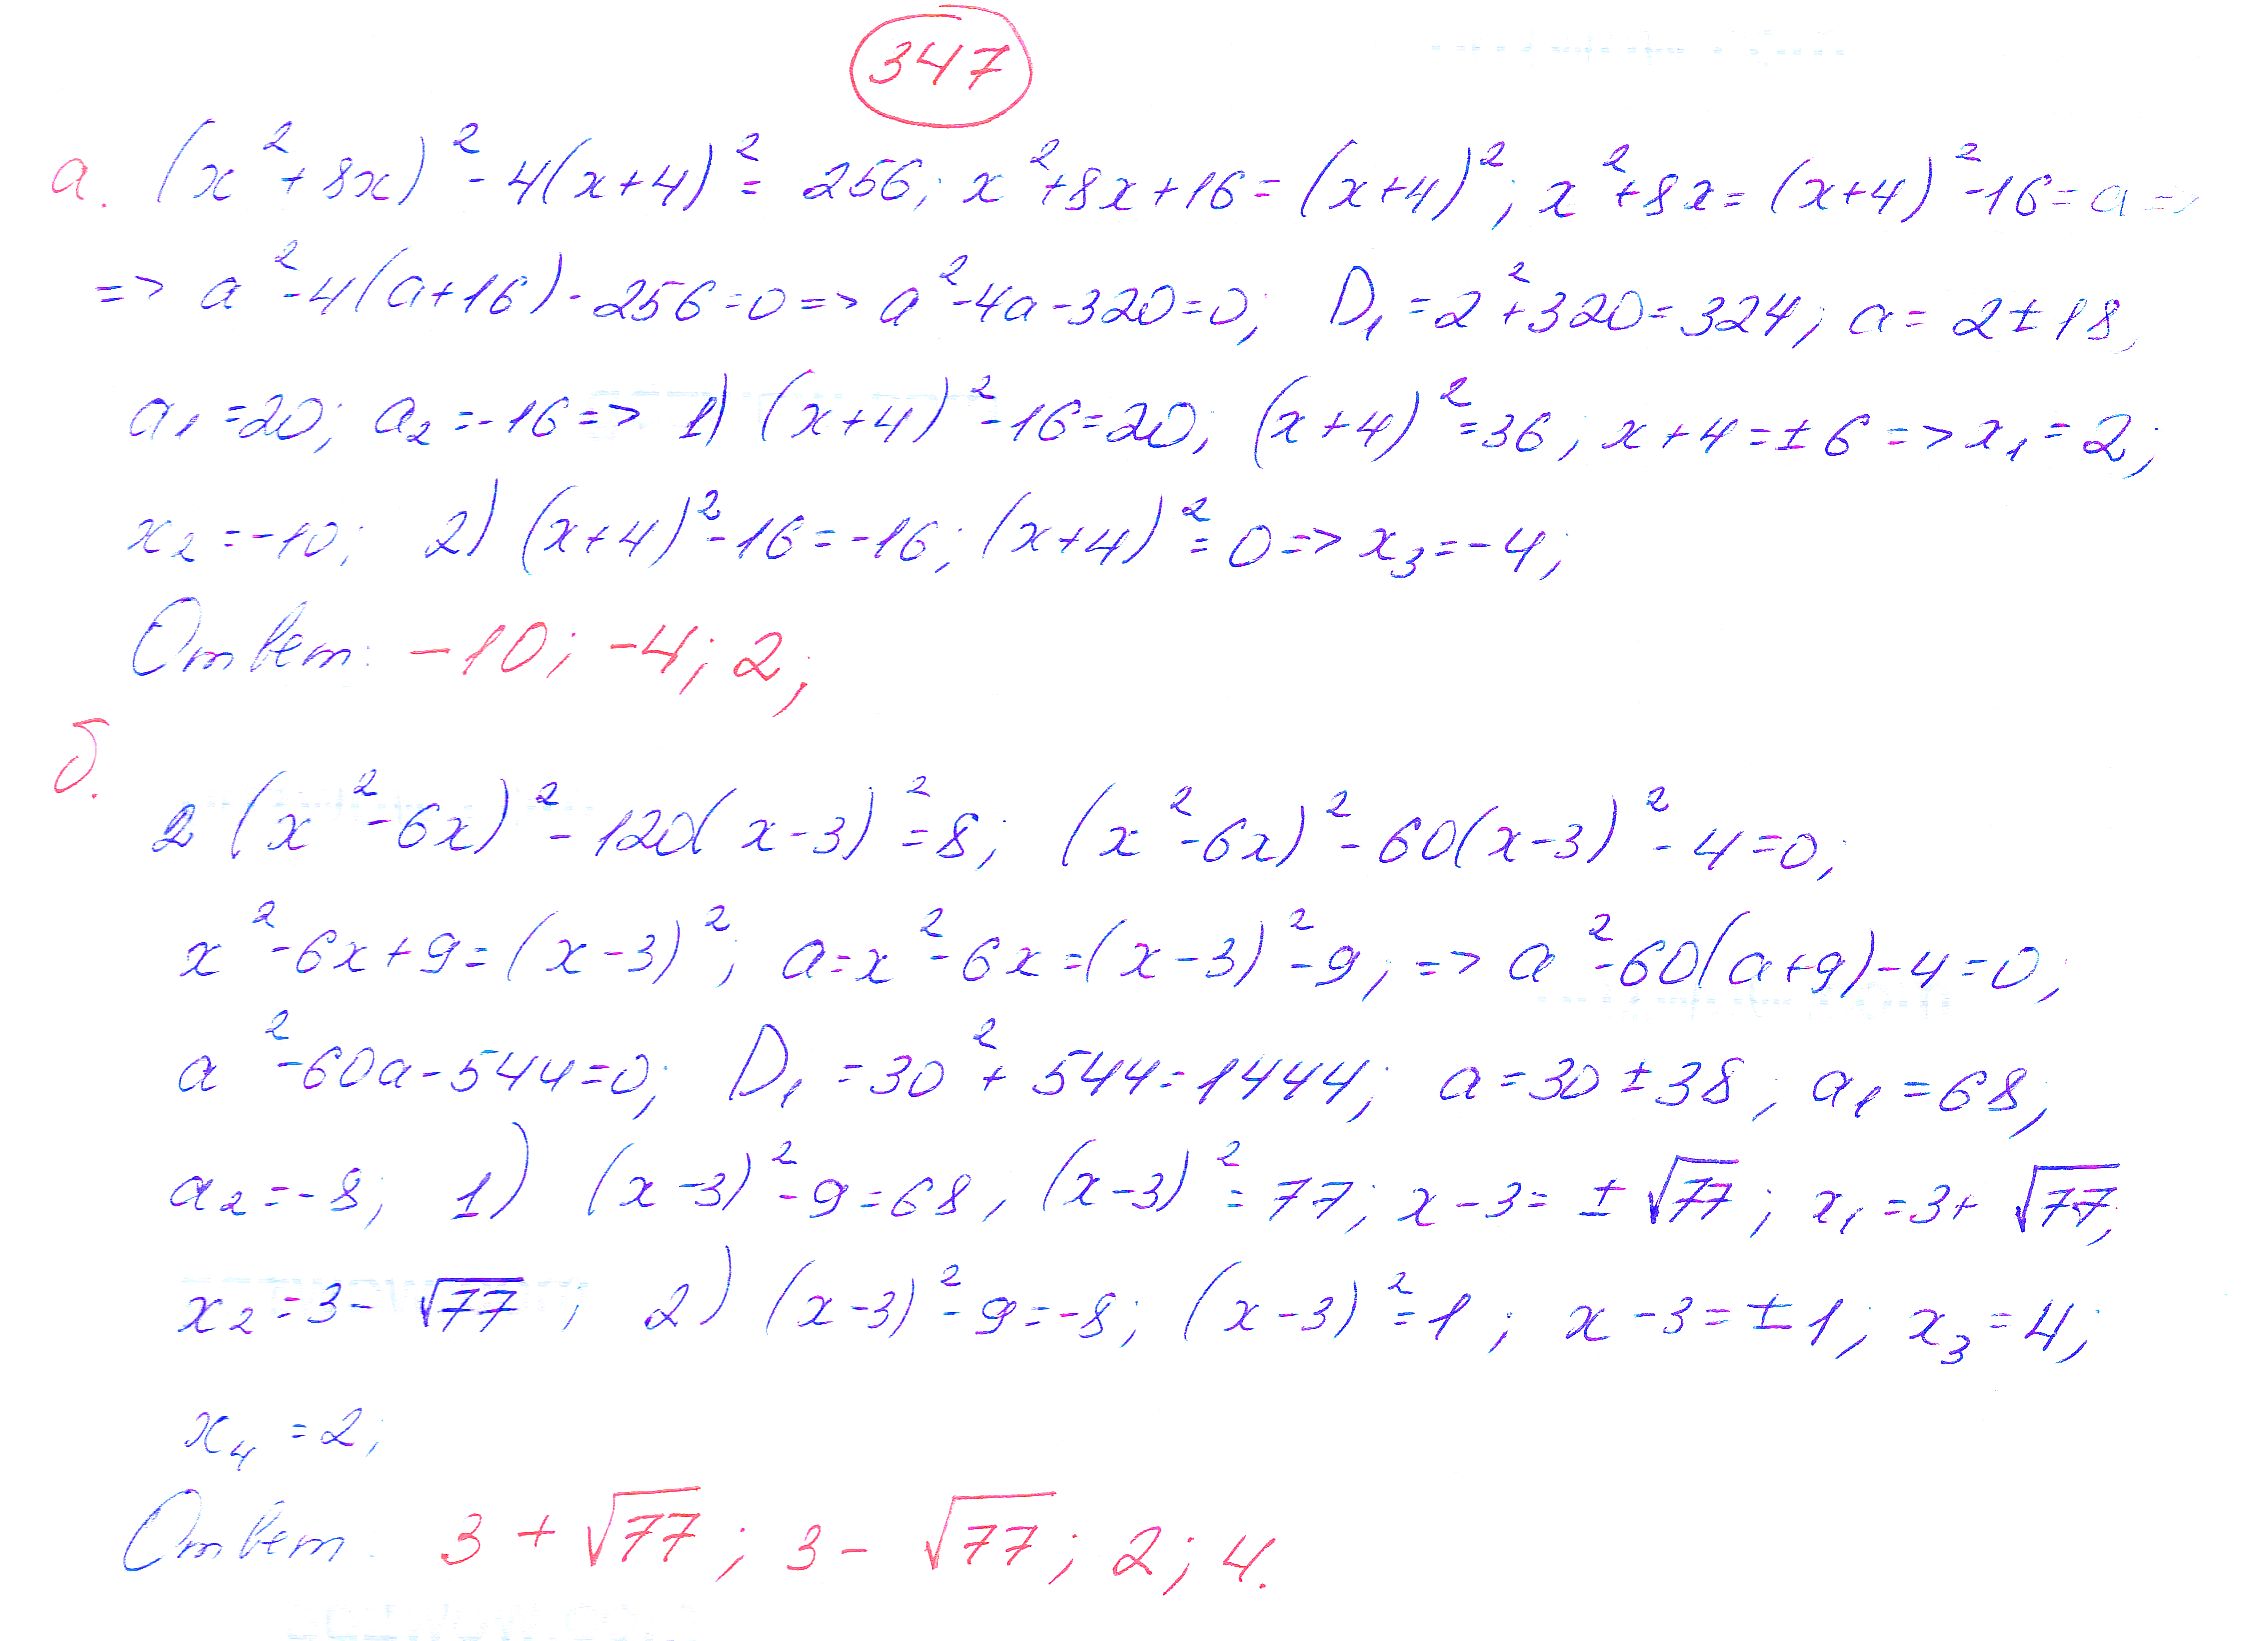 347
а. (x²+8x)²-4(x+4)²= 256; x²+8x+16=(x+4)²; x²+8x=(x+4)²-16=a=>
=> a²-4(a+16)-256=0=> a²-4a-320=0; D₁=2²+320=324; a= 2±18;
a₁=20; a₂=-16=> 1) (x+4)²-16=20; (x+4)²=36; x+4=±6=>x₁=2;
x₂=-10; 2) (x+4)²-16=-16; (x+4)²=0=> x₃=-4;
Ответ: -10; -4; 2;
б.
2(x²-6x)²-120(x-3)²=8; (x²-6x)²-60(x-3)²-4=0;
x²-6x+9=(x-3)²; a=x²-6x=(x-3)²-9; => a²-60(a+9)-4=0;
a²-60a-544=0; D₁=30²+544=1444; a=30±38; a₁=68;
a₂=-8; 1) (x-3)²-9=68, (x-3)²=77; x-3=±√77; x₁=3+√77;
x₂=3-√77; 2) (x-3)²-9=-8; (x-3)²=1; x-3=±1; x₃=4;
x₄=2;
Ответ. 3+√77; 3-√77; 2; 4.